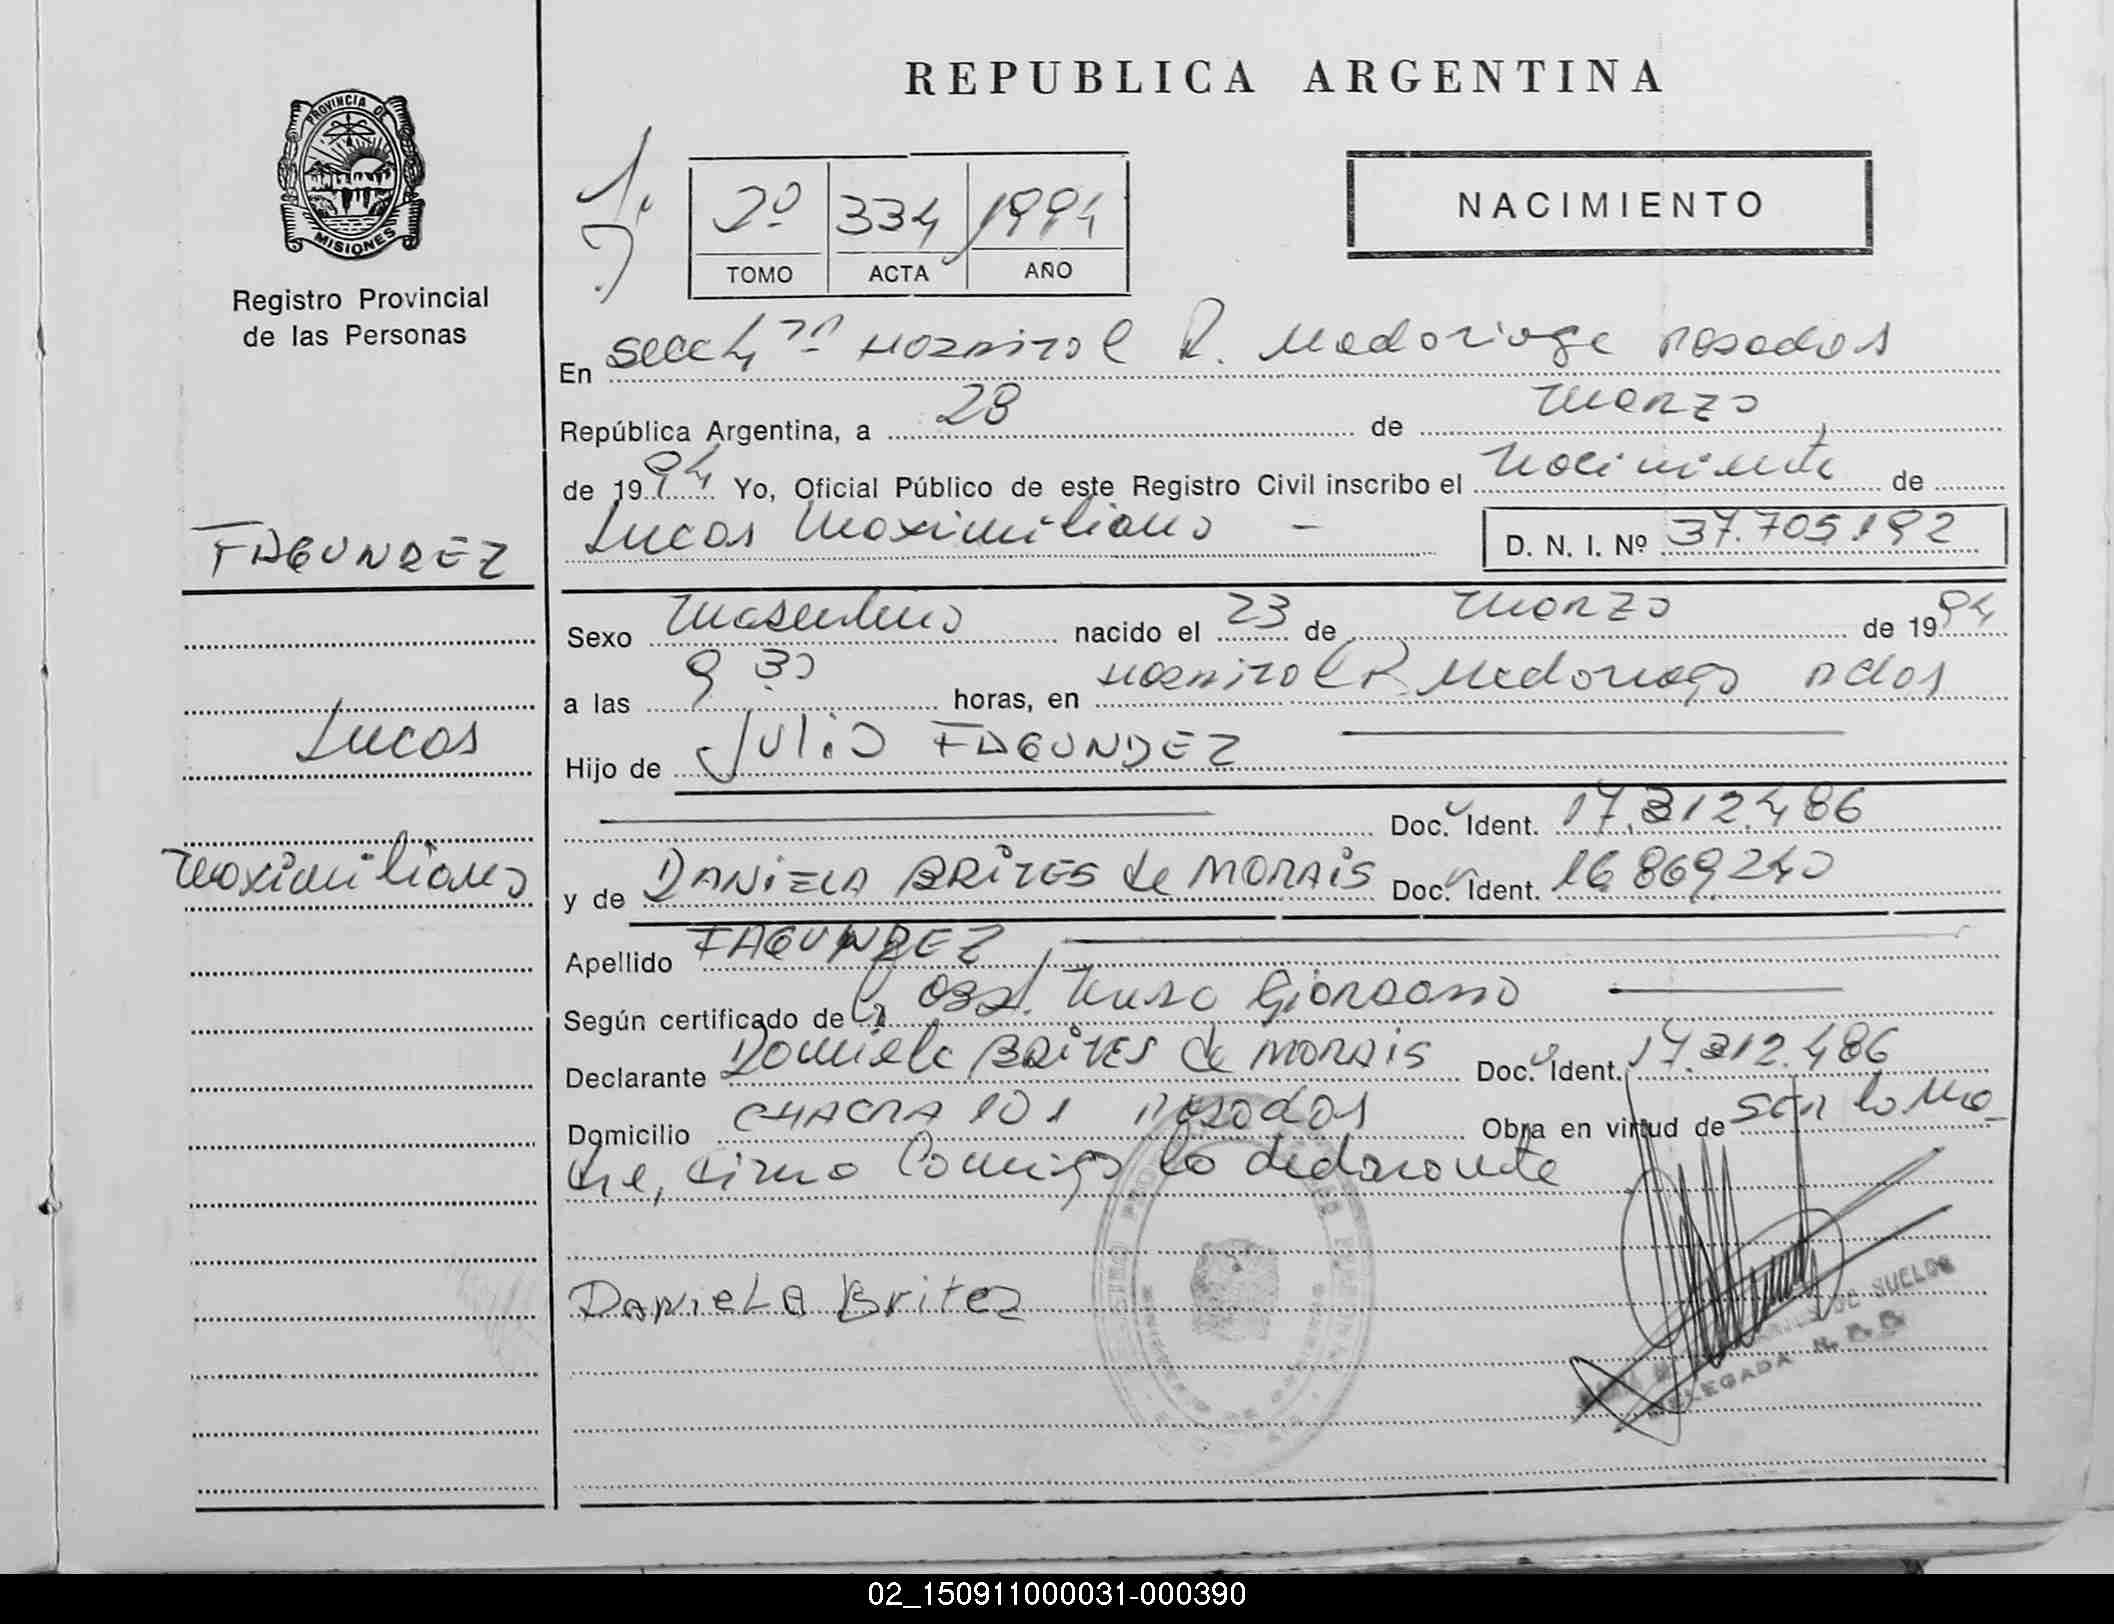 REPUBLICA ARGENTINA
PROVINCIA DE
MISIONES
Registro Provincial
de las Personas
2º 334 1994
TOMO ACTA AÑO
NACIMIENTO
En Secc 4ª Hospital R. Madariaga Posadas
República Argentina, a 28 de Marzo
de 1994 Yo, Oficial Público de este Registro Civil inscribo el Nacimiento de
Lucas Maximiliano - D. N. I. Nº 37.705.192
FAGUNDEZ
Sexo Masculino nacido el 23 de Marzo de 1994
a las 9 30 horas, en Hospital R. Madariaga Pdas
Lucas
Hijo de Julio FAGUNDEZ
Doc. Ident. 17.312.486
Maximiliano
y de DANIELA BRITES de MORAIS Doc. Ident. 16.869.240
Apellido FAGUNDEZ
Según certificado de la Obst. Giordano
Declarante Daniela BRITES de MORAIS Doc. Ident. 17.312.486
Domicilio CHACRA 101 Posadas Obra en virtud de ser la Ma-
dre, firma conmigo la declarante
DANIELA Britez
DE SUELOS
DELEGADA
02_150911000031-000390